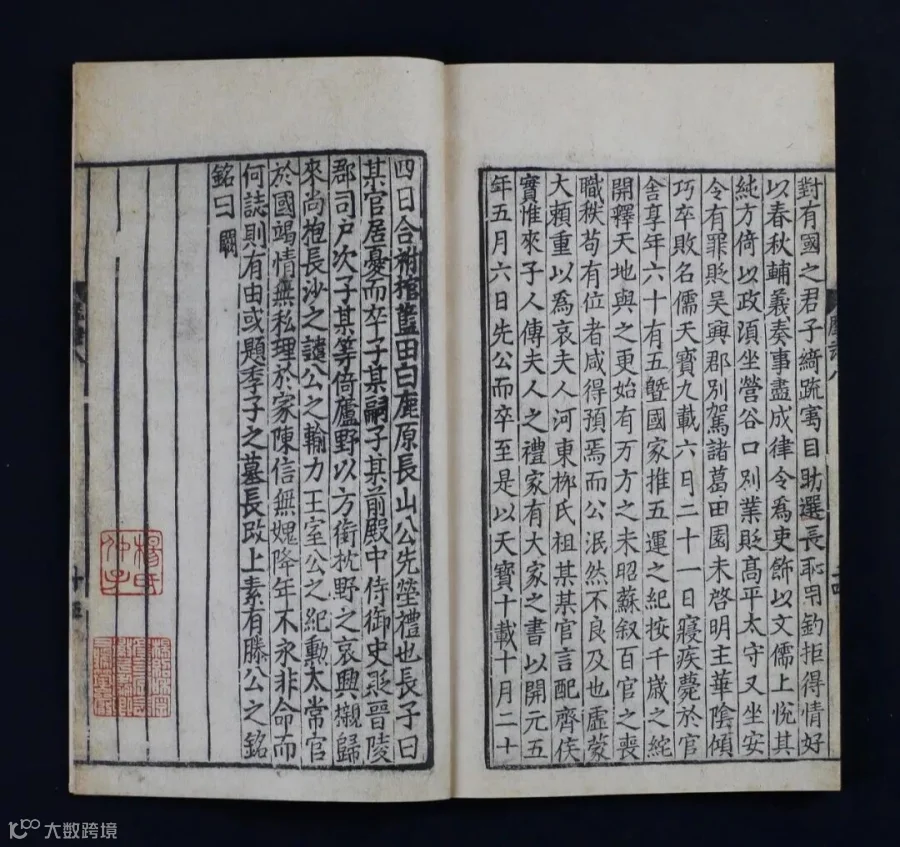 對有國之君子綺疏寓目昉選長耻用鈎拒得情好
以春秋輔義奏事盡成律令爲吏飾以文儒上恱其
純方倚以政湏坐營谷口别業貶髙平太守又坐安
令有罪貶吳興郡別駕諸葛田園未啓明主華陰傾
巧卒敗名儒天寶九載六日二十一日寢疾薨於官
舎享年六十有五曁國家推五運之紀按千歲之統
開釋天地與之更始有万方之未昭蘇叙百官之喪
職秩苟有位者咸得預焉而公泯然不良及也虛蒙
大頼重以爲哀夫人河東栁氏祖某某官言配齊侯
實惟來子人傳夫人之禮家有大家之書以開元五
年五月六日先公而卒至是以天寶十載十月二十
四日合祔棺藍田白鹿原長山公先塋禮也長子曰
某官居憂而卒子某嗣子某前殿中侍御史貶晉陵
郡司戸次子某等倚廬野以方銜枕野之哀興櫬歸
來尚抱長沙之譴公之輸力王室公之紀勲太常官
於國竭情無私理於家陳信無媿降年不永非命而
何誌則有由或題季子之墓長改上素有滕公之銘
銘曰闕
楊氏
大数跨境